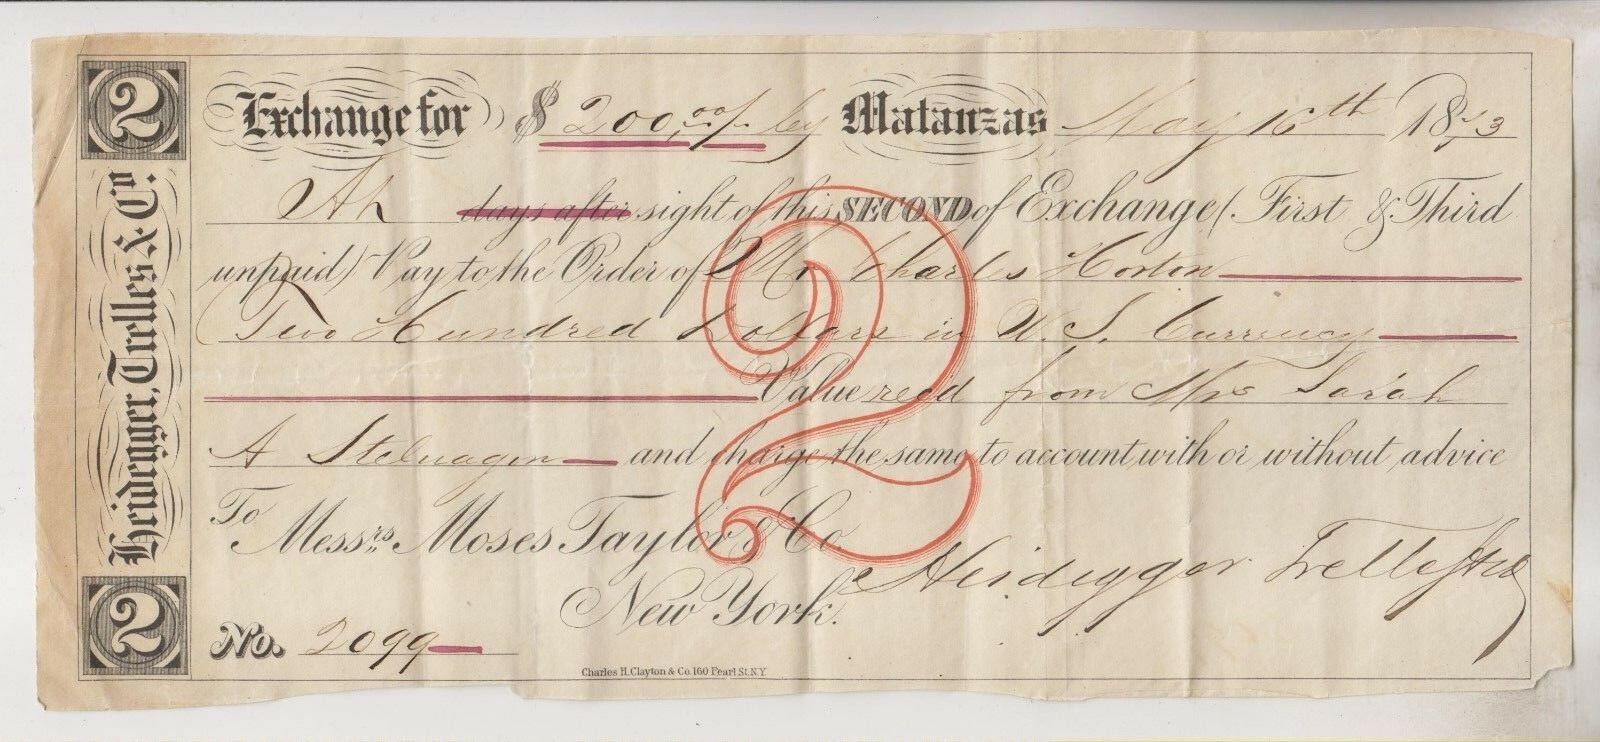 2
Heidegger, Trelles & Co.
2
Exchange for $ 200,00/ Cy Matanzas May 16th 1873
At days after sight of this SECOND of Exchange (First & Third
unpaid) Pay to the Order of Mr Charles Horton
Two Hundred Dollars in U. S. Currency
Value recd from Mrs Sarah
A Stelwagen and charge the same to account with or without advice
To Messrs. Moses Taylor & Co.
New York.
Heidegger Trelles & Co
No. 2099
Charles H. Clayton & Co. 160 Pearl St. N.Y.
2